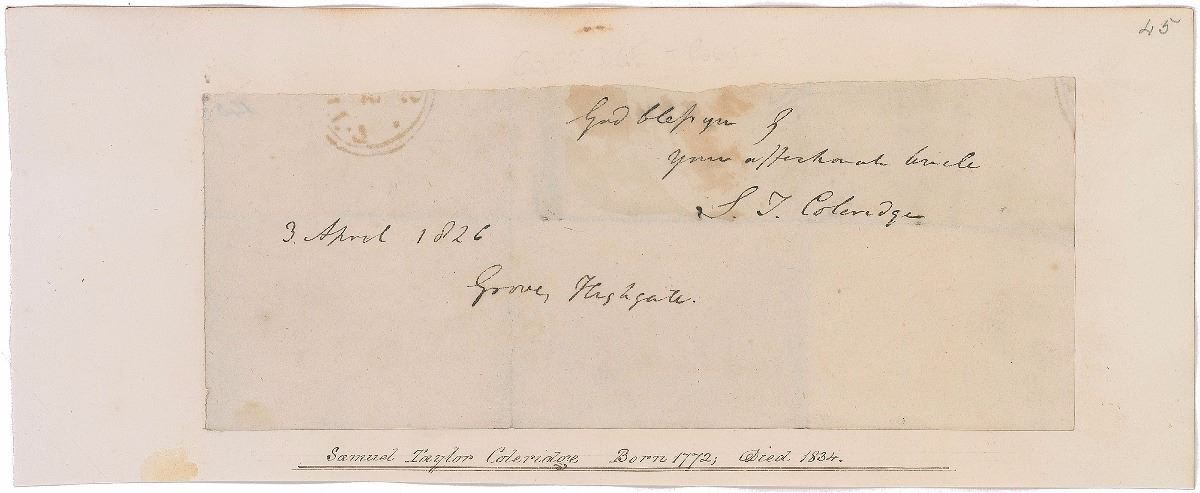 45
God bless you &
your affectionate Uncle
S. T. Coleridge
3 April 1826
Grove, Highgate.
Samuel Taylor Coleridge Born 1772; Died 1834.